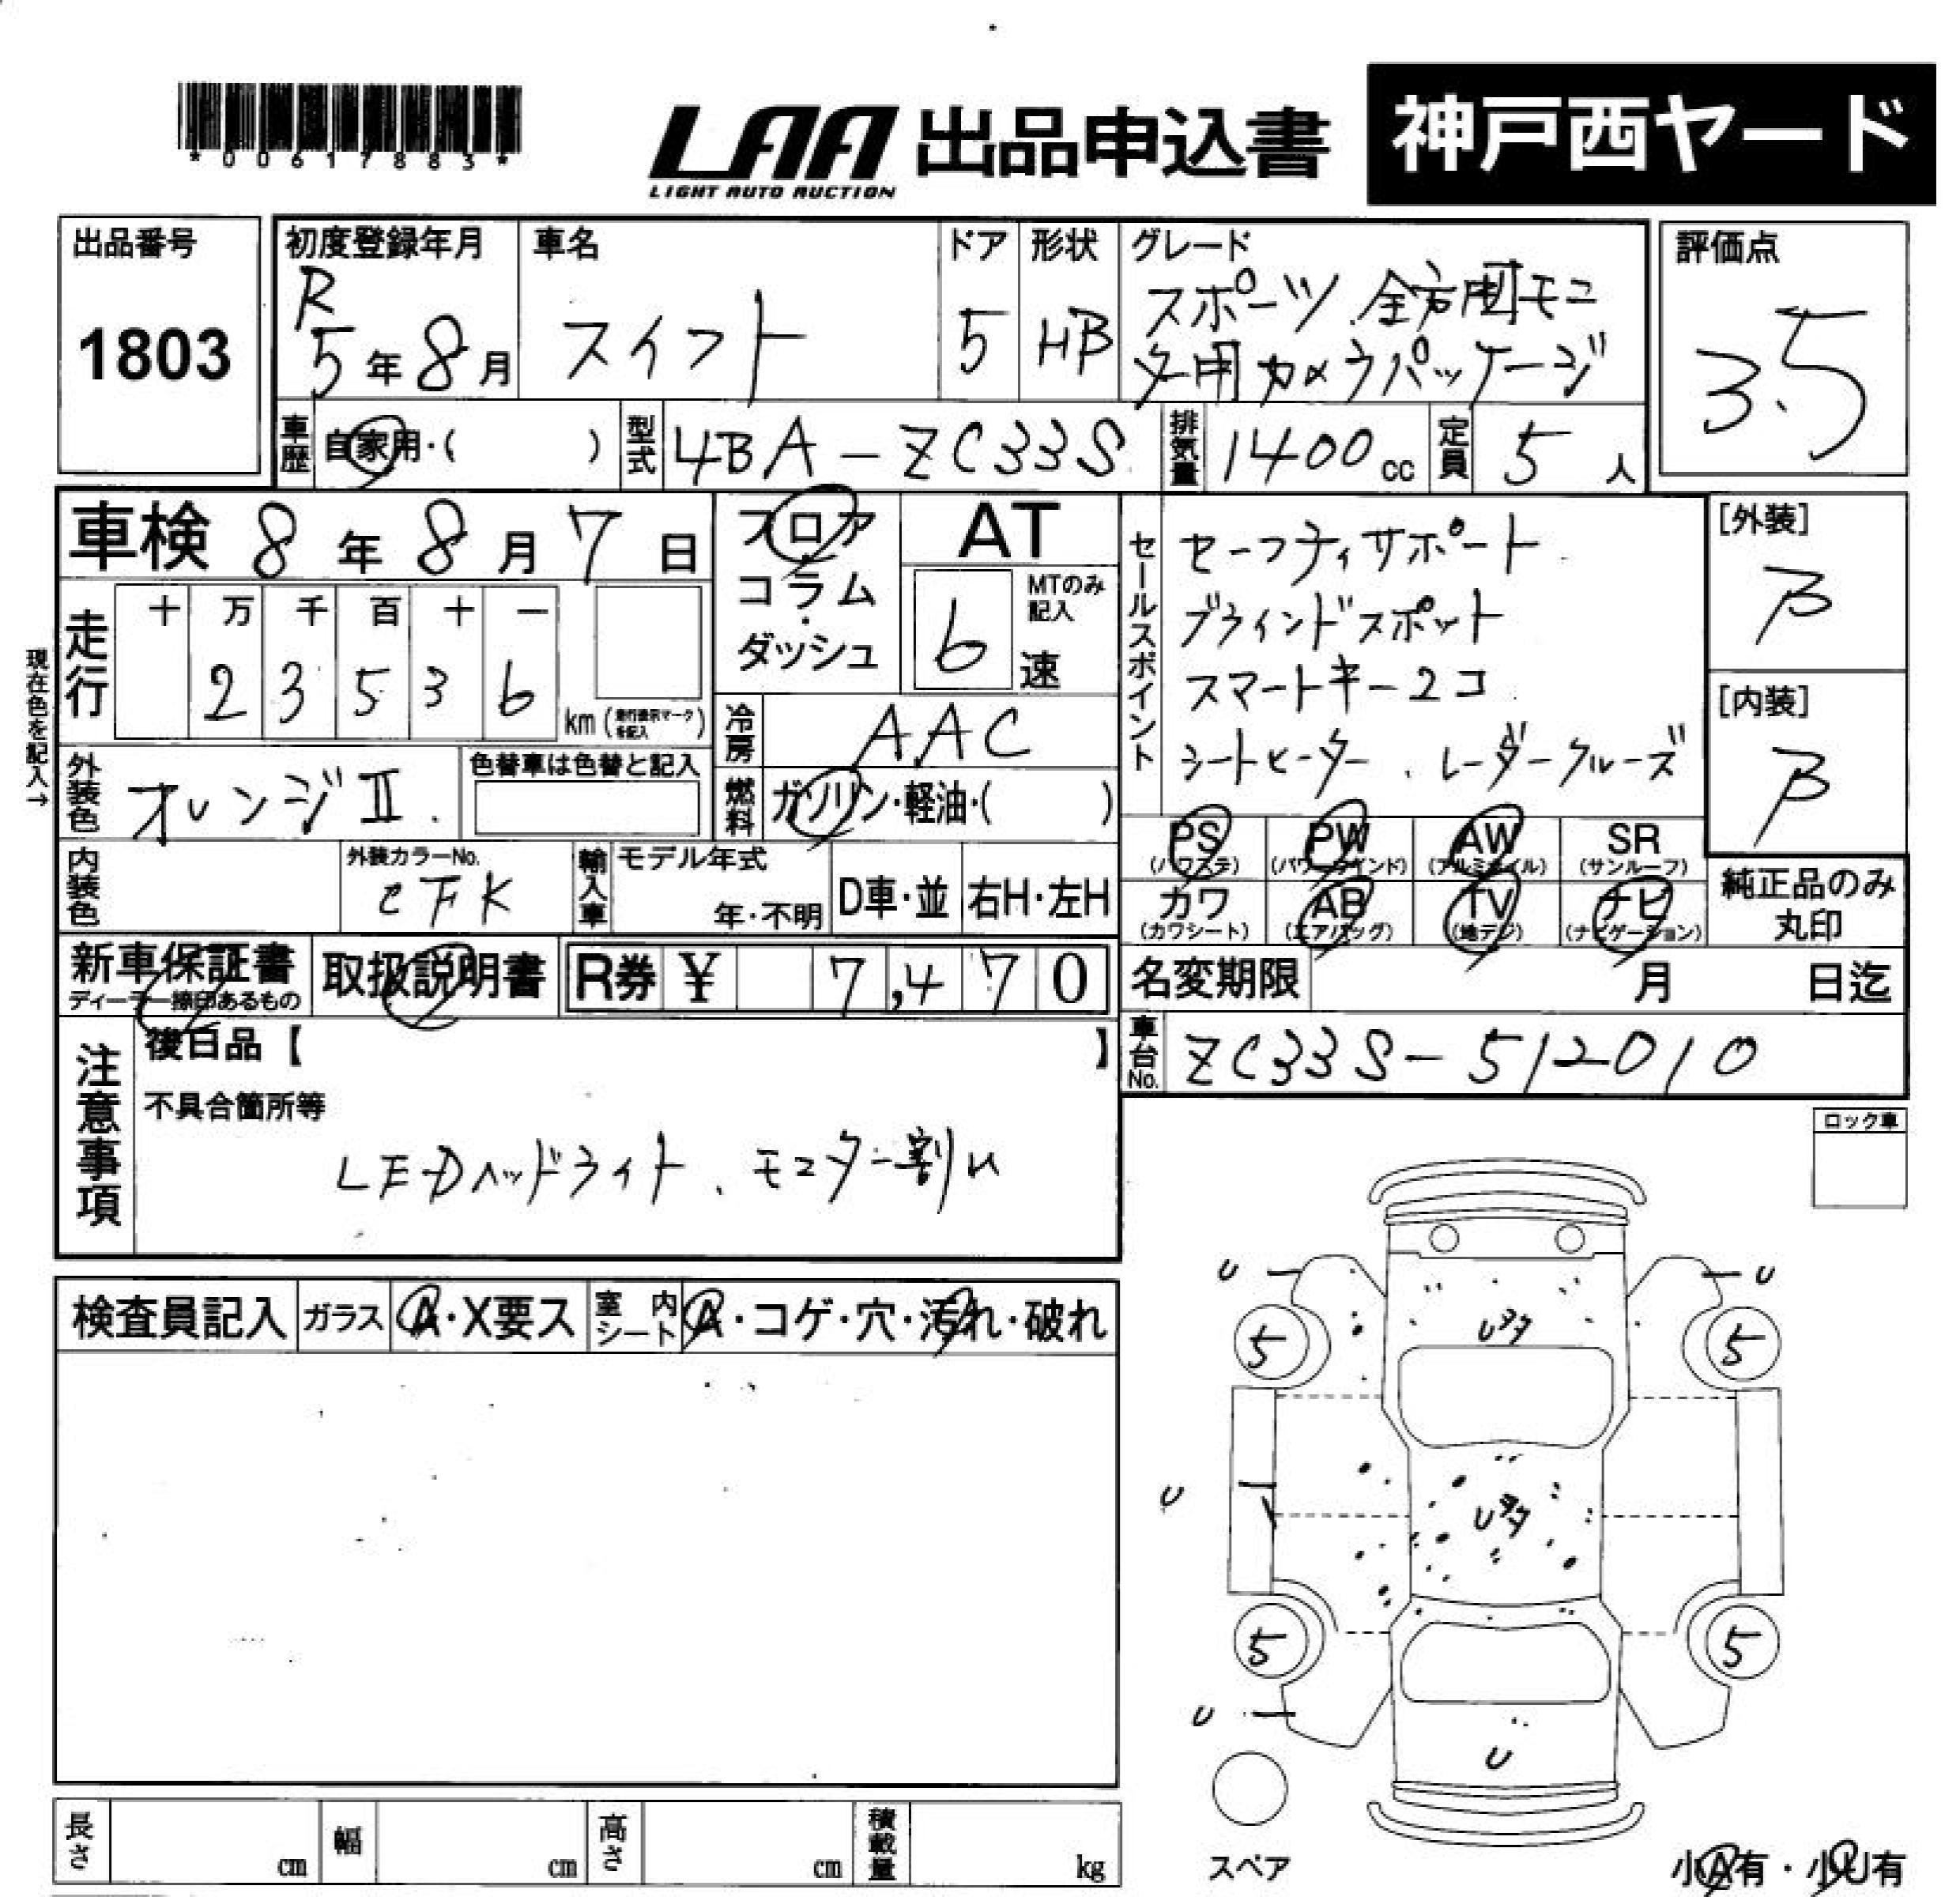 *00617883*
LAA
LIGHT AUTO AUCTION
出品申込書
神戸西ヤード
出品番号
1803
初度登録年月
R
5年8月
車名
スイフト
ドア
5
形状
HB
グレード
スポーツ.全方囲モニ
タ用カメラパッケージ
評価点
3.5
車歴
自家用・( )
型式
4BA-ZC33S
排気量
1400cc
定員
5人
車検 8年8月7日
フロア
コラム
・
ダッシュ
AT
6
MTのみ
記入
速
現在色を記入→
走行
十 万 千 百 十 一
2 3 5 3 6
km(走行表示マークを記入)
冷房
AAC
燃料
ガソリン・軽油・( )
外装色
オレンジⅡ.
色替車は色替と記入
内装色
外装カラーNo.
CFK
輸入車
モデル年式
年・不明
D車・並
右H・左H
セールスポイント
セーフティサポート
ブラインドスポット
スマートキー2コ
シートヒーター.レーダークルーズ
[外装]
β
[内装]
β
PS
(パワステ)
PW
(パワーウインド)
AW
(アルミホイル)
SR
(サンルーフ)
カワ
(カワシート)
AB
(エアバッグ)
TV
(地デジ)
ナビ
(ナビゲーション)
純正品のみ
丸印
新車保証書
ディーラー捺印あるもの
取扱説明書
R券 ¥ 7,470
名変期限 月 日迄
車台No.
ZC33S-512010
注意事項
後日品【 】
不具合箇所等
LEDヘッドライト.モニター割レ
ロック車
検査員記入
ガラス
A・X要ス
室内シート
A・コゲ・穴・汚れ・破れ
U U
5 5
Uタタ
U
Uタタ
5 5
U
U
スペア
長さ cm
幅 cm
高さ cm
積載量 kg
小A有・小U有